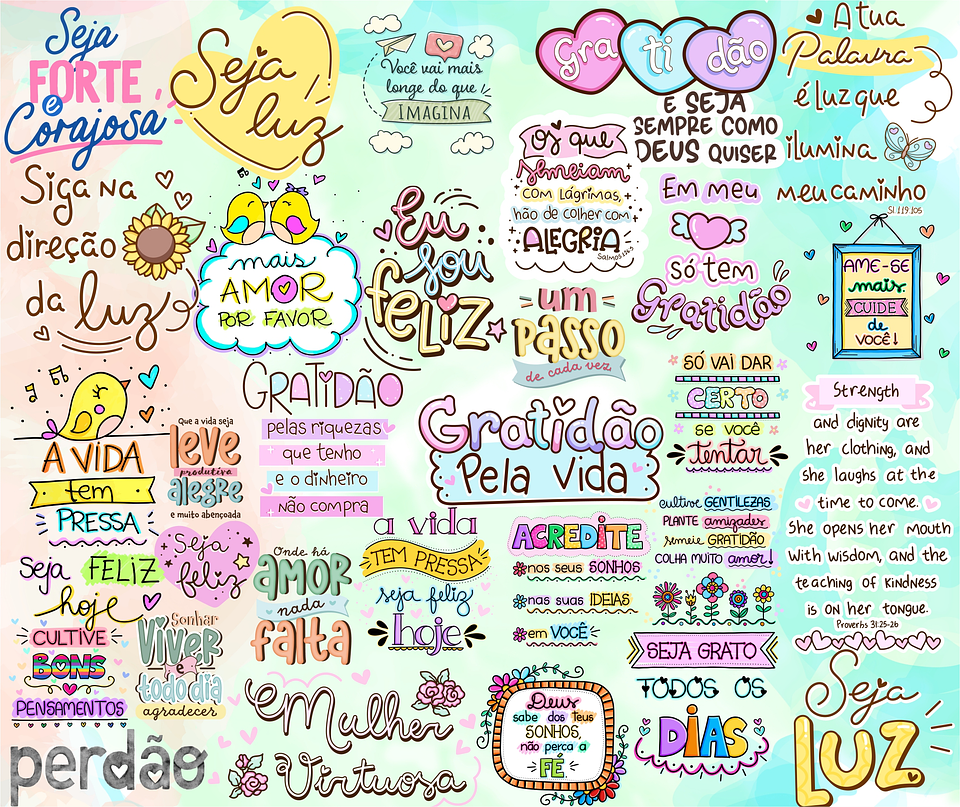 Seja
FORTE
e
Corajosa
Seja
luz
Você vai mais
longe do que
IMAGINA
Gra ti dão
E SEJA
SEMPRE COMO
DEUS QUISER
A tua
Palavra
é luz que
ilumina
meu caminho
Sl 119.105
Siga na
direção
da luz
mais
AMOR
POR FAVOR
Eu
sou
feliz
Os que
semeiam
COM LÁGRIMAS,
hão de colher com
ALEGRIA
Em meu
só tem
Gratidão
AME-SE
mais.
CUIDE
de
VOCÊ!
um
PASSO
de cada vez
GRATIDÃO
pelas riquezas
que tenho
e o dinheiro
não compra
SÓ VAI DAR
CERTO
se você
tentar
Strength
and dignity are
her clothing, and
she laughs at the
time to come.
She opens her mouth
with wisdom, and the
teaching of kindness
is on her tongue.
Proverbs 31:25-26
A VIDA
tem
PRESSA
Que a vida seja
leve
produtiva
alegre
e muito abençoada
Gratidão
Pela vida
Seja FELIZ
hoje
Seja
feliz
Onde há
amor
nada
falta
a vida
TEM PRESSA
seja feliz
hoje
ACREDITE
nos seus SONHOS
nas suas IDEIAS
em VOCÊ
cultive GENTILEZAS
PLANTE amizades
semeie GRATIDÃO
COLHA MUITO amor!
SEJA GRATO
TODOS OS
DIAS
CULTIVE
BONS
PENSAMENTOS
Sonhar
Viver
e
todo dia
agradecer
perdão
Mulher
Virtuosa
Deus
sabe dos teus
SONHOS,
não perca a
FÉ
Seja
LUZ